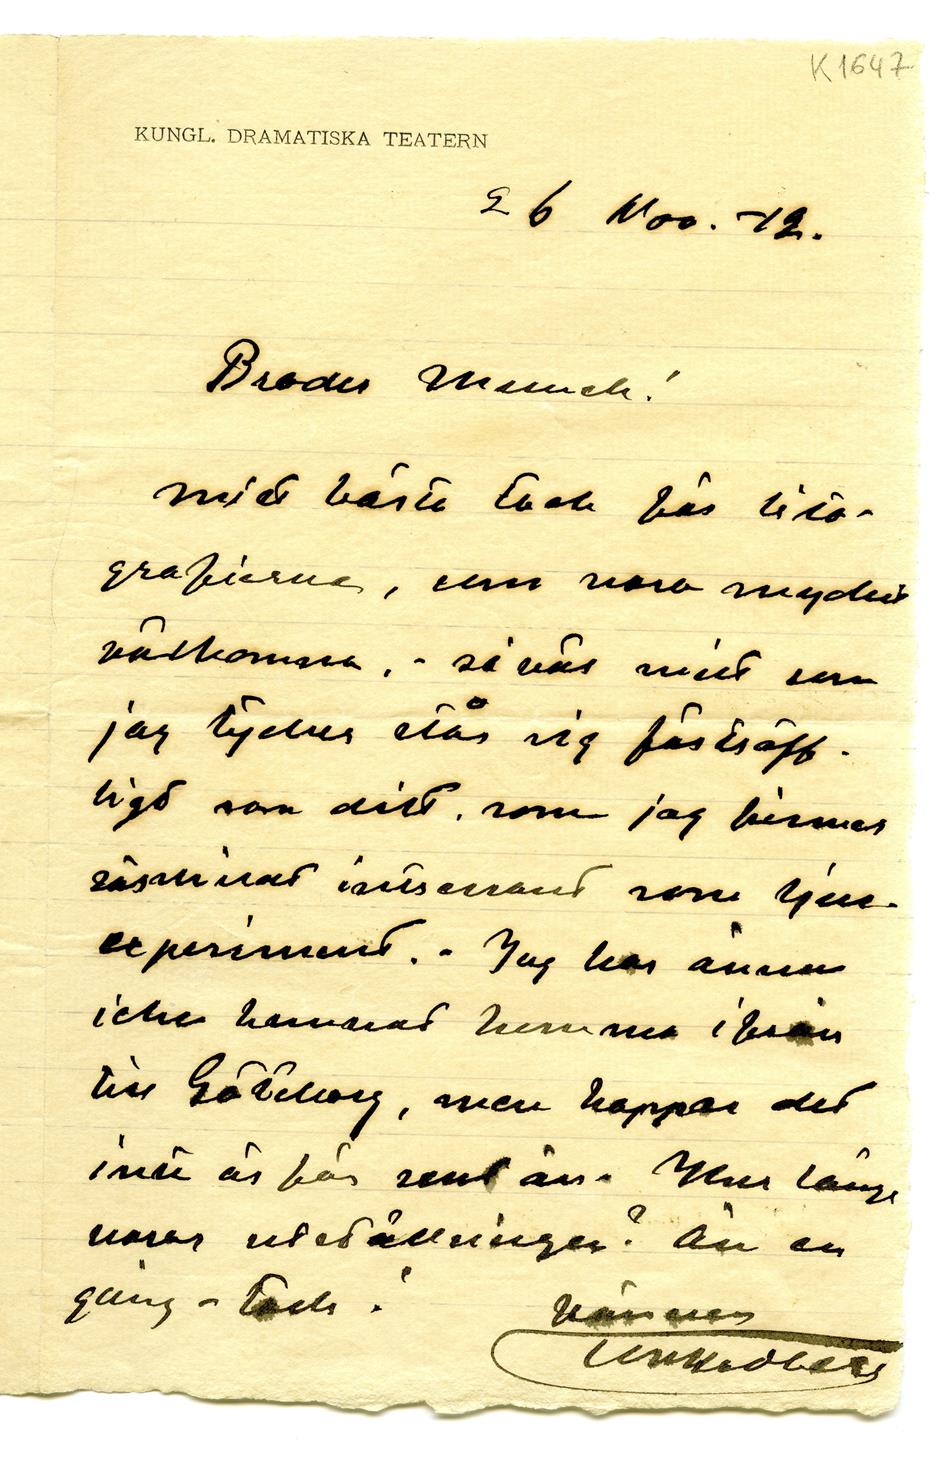 K 1647
KUNGL. DRAMATISKA TEATERN
26 Nov. -12.
Broder Munch!
mitt bästa tack för lito-
grafierna, som voro mycket
välkomna. - såväl mitt som
jag tycker står sig förträff-
ligt som ditt, som jag finner
särskildt intressant som ljus-
experiment. - Jag har ännu
icke hunnat hemma ifrån
till Göteborg, men hoppas det
inte är för sent än. Hur länge
varar utställningen? Än en
gång - tack!
Vännen
Tor Hedberg